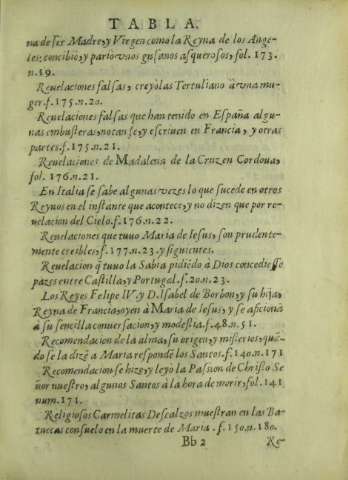 TABLA.
na de ser Madre, y Virgen como la Reyna de los Ange-
les: concibio, y pariò vnos gusanos asquerosos, fol. 173.
n. 19.
Reuelaciones falsas, creyòlas Tertuliano à vna mu-
ger. f. 175. n. 20.
Reuelaciones falsas que han tenido en España algu-
nas embusteras, notanse, y escriuen en Francia, y otras
partes. f. 175. n. 21.
Reuelaciones de Madalena de la Cruz en Cordoua,
fol. 176. n. 21.
En Italia se sabe algunas vezes lo que sucede en otros
Reynos en el instante que acontece, y no dizen que por re-
uelacion del Cielo. f. 176. n. 22.
Reuelaciones que tuuo Maria de Iesus, son prudente-
mente creibles, f. 177. n. 23. y siguientes.
Reuelacion q̃ tuuo la Sabia pidiẽdo à Dios concediesse
pazes entre Castilla, y Portugal. f. 20. n. 23.
Los Reyes Felipe IV. y D. Isabel de Borbon, y su hija,
Reyna de Francia, oyen à Maria de Iesus, y se aficionã
à su sencilla conuersacion, y modestia. f. 48. n. 51.
Recomendacion de la alma, su origen, y misterios, quã-
do se la dizẽ a Maria responde los Santos. f. 140. n. 171
Recomendacion se hize, y leyo la Passion de Christo Se
ñor nuestro, algunos Santos à la hora de morir, fol. 141
num. 171.
Religiosos Carmelitas Descalzos muestran en las Ba-
tuecas consuelo en la muerte de Maria. f. 150. n. 180.
Bb 2 Re-